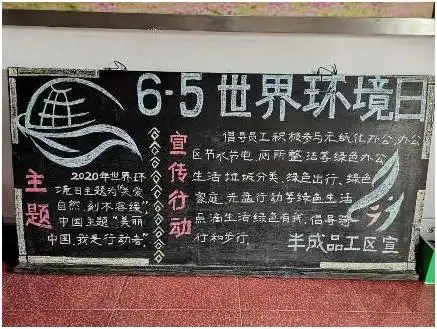 6-5世界环境日
主题
2020年世界环
境日主题为“关爱
自然,刻不容缓”,
中国主题“美丽
中国,我是行动者”。
宣传行动
倡导员工积极参与无纸化办公,办公
区节水节电,厕所整洁等绿色办公
生活,垃圾分类、绿色出行、绿色
家庭、光盘行动等绿色生活
点滴生活绿色有我,倡导骑
行和步行.
丰成品工区宣